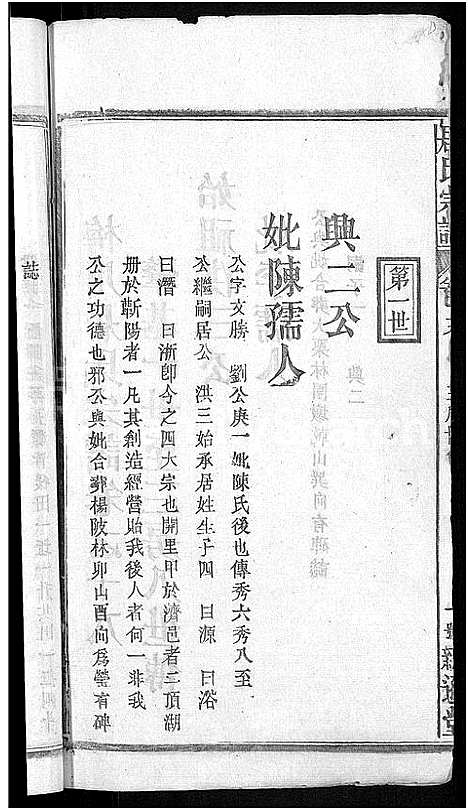 居氏宗譜
第一世
典二公
妣陳孺人
公字文勝　劉公庚一妣陳氏後也傳秀六秀八至
公繼嗣居公　洪三始承居姓生子四　曰源　曰浴
曰潛　曰漸卽今之四大宗也開里甲於濟邑者三頂湖
册於蘄陽者一凡其創造經營貽我後人者何一非我
公之功德也邪公與妣合葬楊陂林卯山酉向爲塋有碑
誌